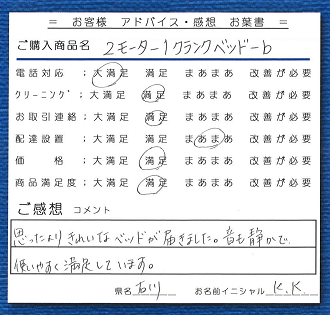 = お客様 アドバイス・感想 お葉書 =
ご購入商品名 2モーター1クランクベッドーb
電話対応 ; 大満足 満足 まあまあ 改善が必要
クリーニング ; 大満足 満足 まあまあ 改善が必要
お取引連絡 ; 大満足 満足 まあまあ 改善が必要
配達設置 ; 大満足 満足 まあまあ 改善が必要
価格 ; 大満足 満足 まあまあ 改善が必要
商品満足度 ; 大満足 満足 まあまあ 改善が必要
ご感想 コメント
思ったよりきれいなベッドが届きました。音も静かで、
使いやすく満足しています。
県名 石川 お名前イニシャル K.K.